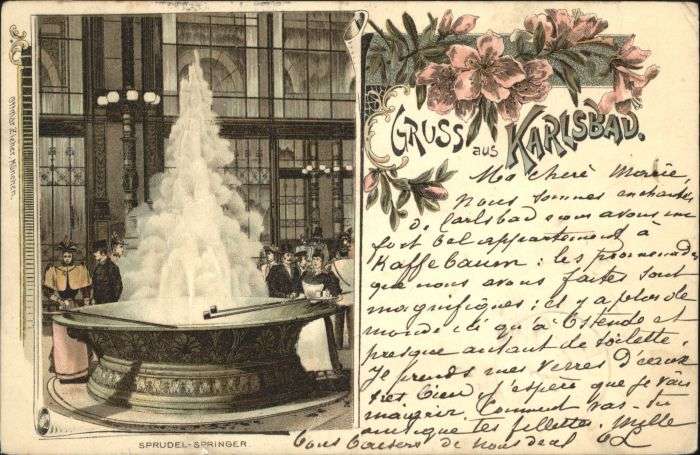 GRUSS AUS KARLSBAD.
Ma chère Marie,
Nous sommes enchantés
de Carlsbad nous avons un
fort bel appartement à
Kaffebaum : les promenades
que nous avons faites sont
magnifiques ; il y a plus de
monde ici qu'à Ostende et
presque autant de toilette.
Je prends mes verres d'eau
très bien j'espère que je vais
maigrir Comment vas-tu
ainsi que les fillettes. Mille
bons baisers de nous deux
SPRUDEL-SPRINGER.